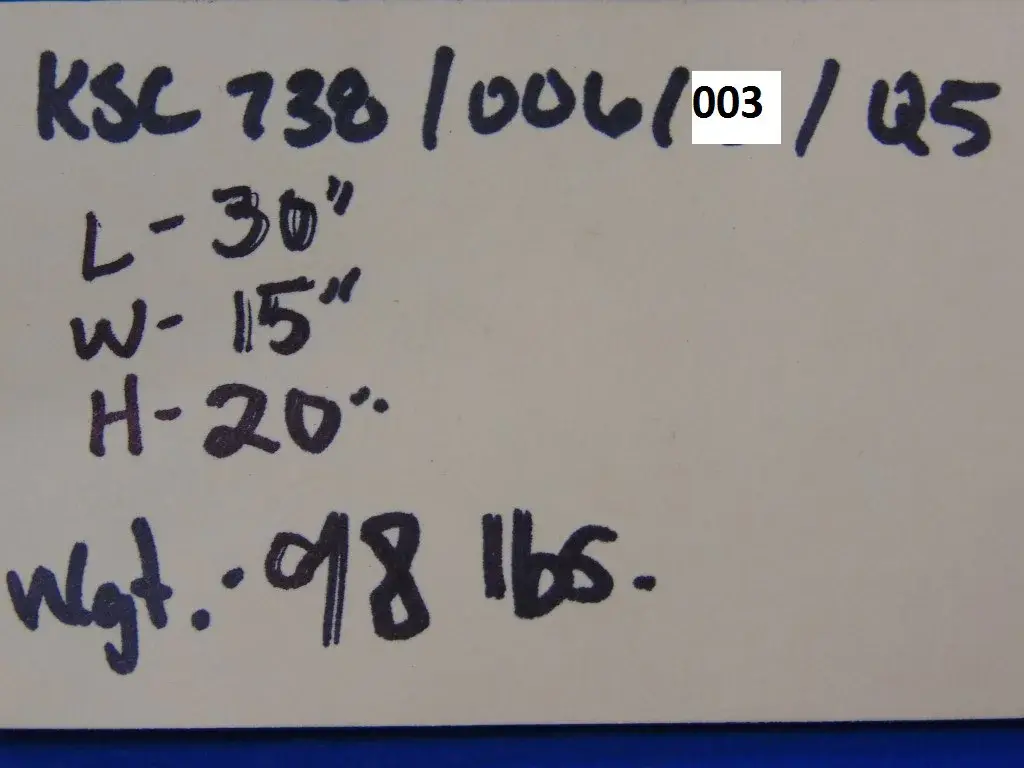 KSC 738/006/003/Q5
L- 30"
W- 15"
H- 20"
Wgt.- 98 lbs.